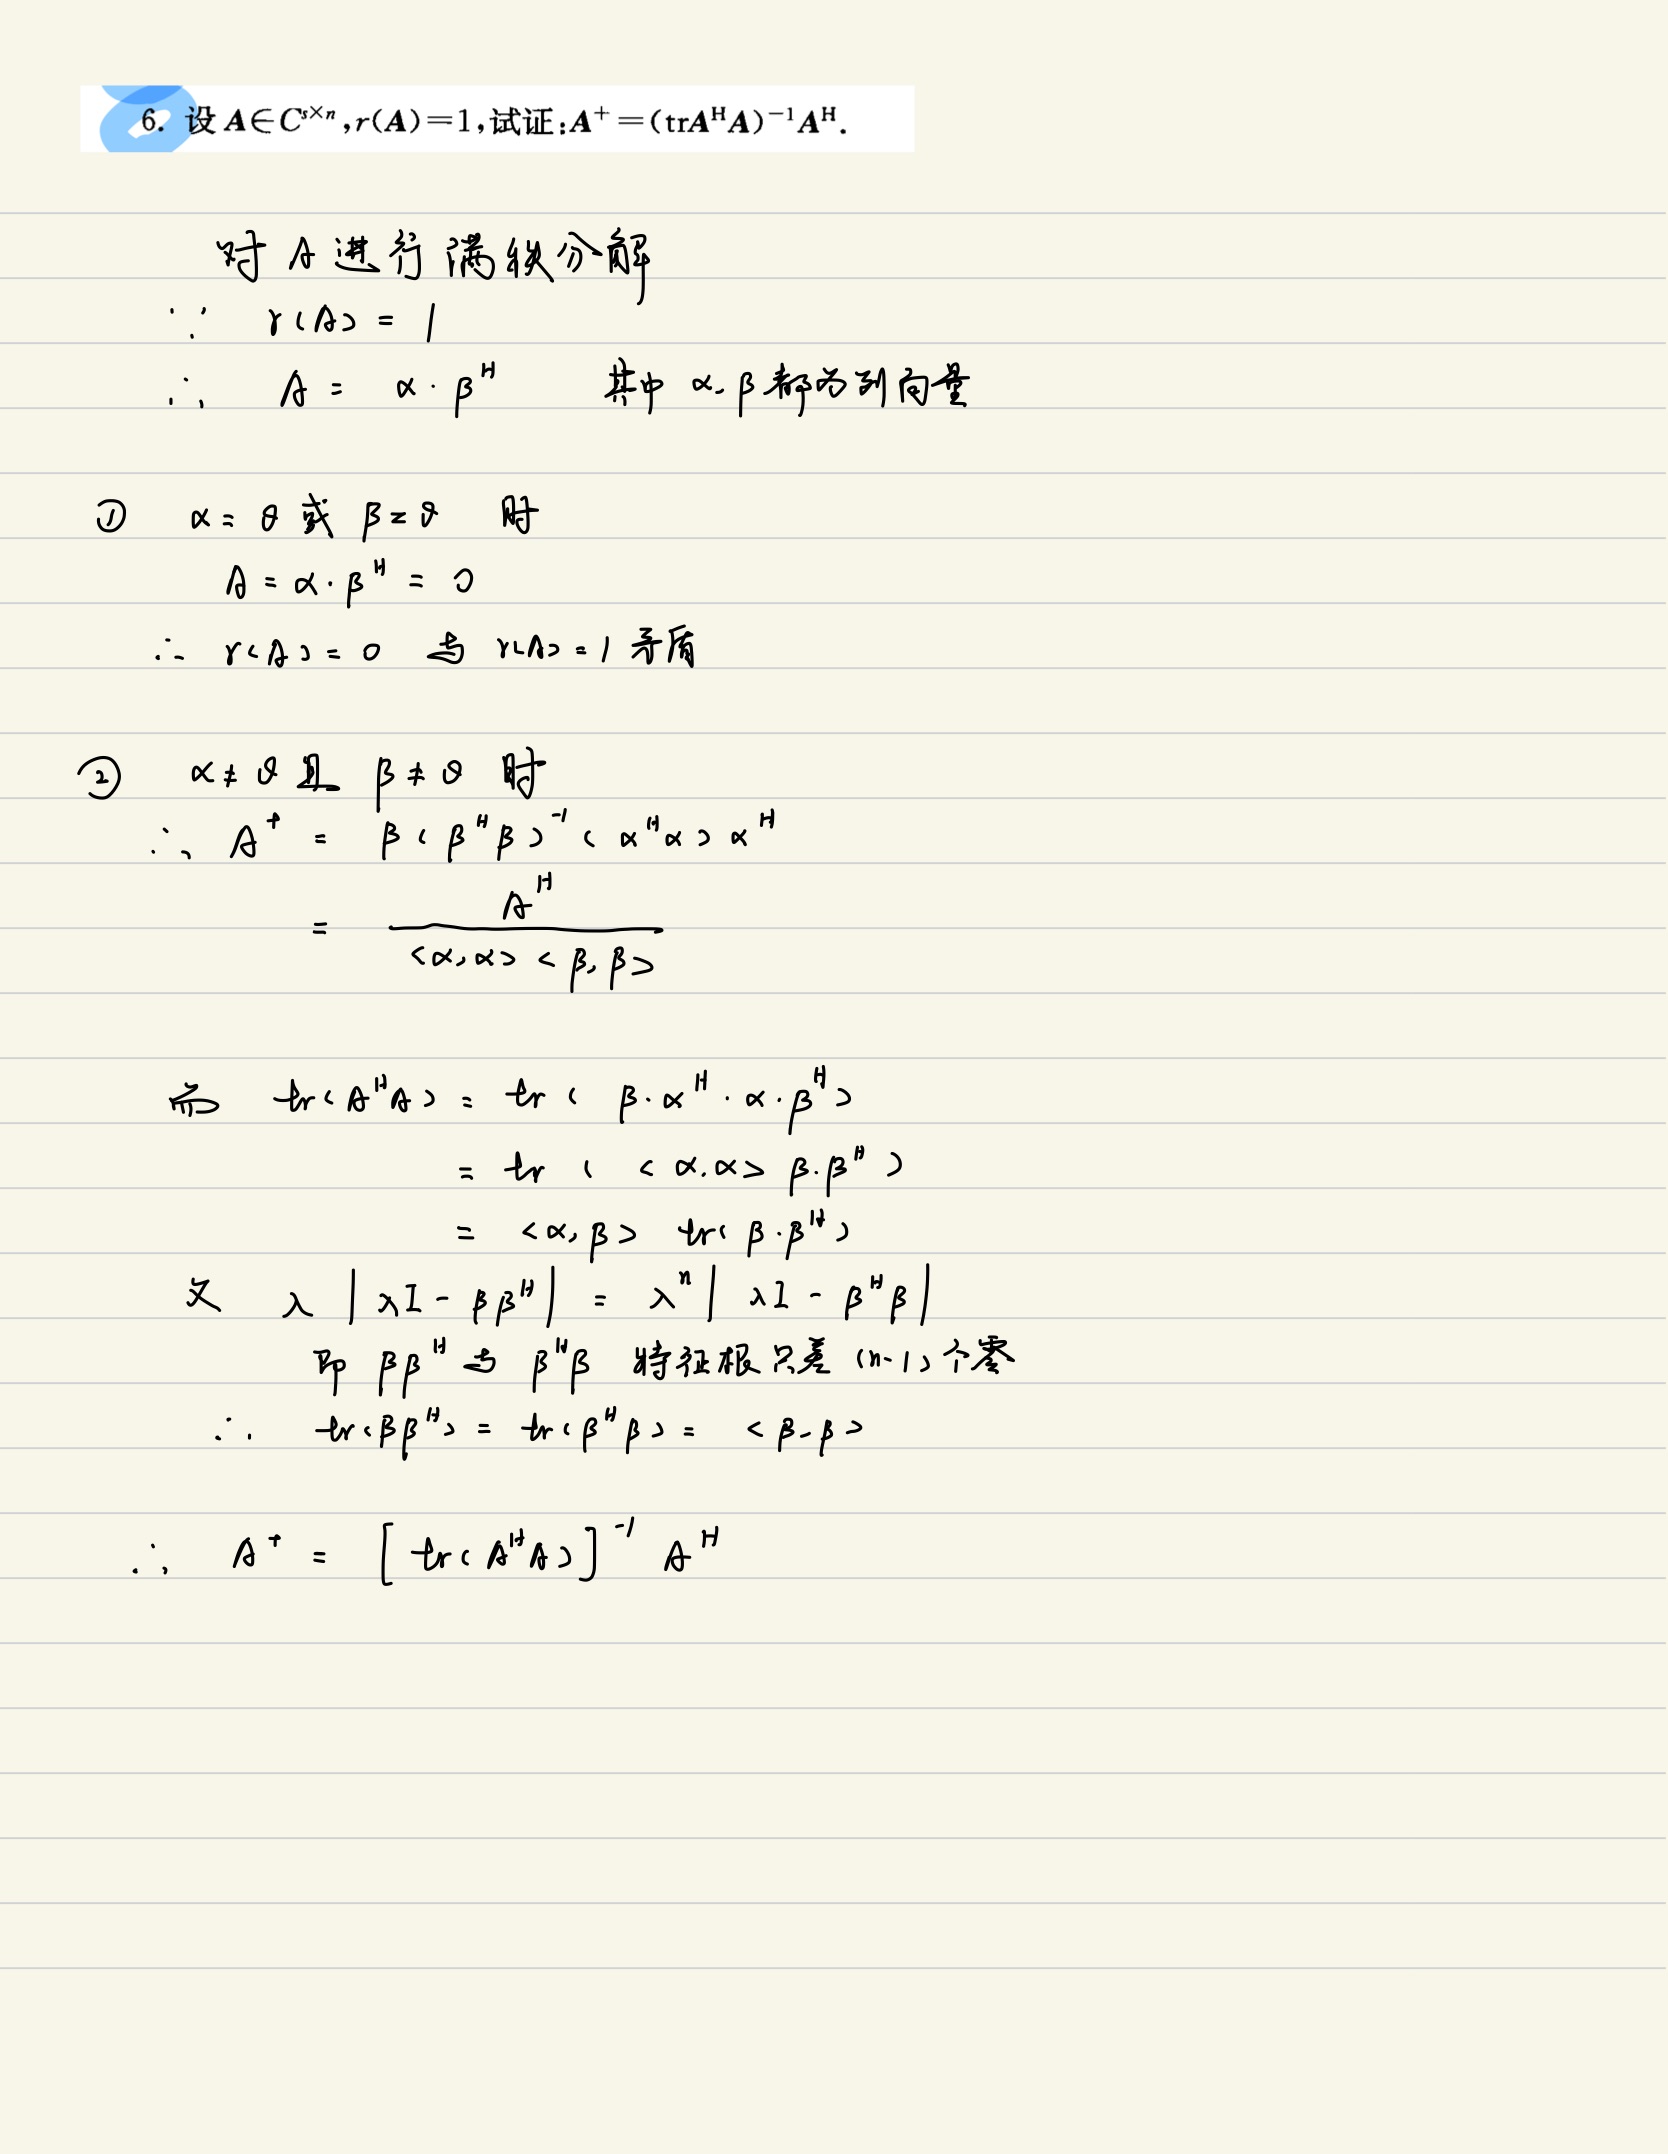 6. 设 A∈C^{s×n}, r(A)=1, 试证: A⁺=(trAᴴA)⁻¹Aᴴ.
对 A 进行满秩分解
∵ r(A) = 1
∴ A = α·βᴴ 其中 α, β 都为列向量
① α = θ 或 β = θ 时
A = α·βᴴ = 0
∴ r(A) = 0 与 r(A) = 1 矛盾
② α ≠ θ 且 β ≠ θ 时
∴ A⁺ = β(βᴴβ)⁻¹(αᴴα)αᴴ
= Aᴴ / <α, α><β, β>
而 tr(AᴴA) = tr(β·αᴴ·α·βᴴ)
= tr(<α, α> β·βᴴ)
= <α, β> tr(β·βᴴ)
又 λ|λI - ββᴴ| = λⁿ|λI - βᴴβ|
即 ββᴴ 与 βᴴβ 特征根只差 (n-1) 个零
∴ tr(ββᴴ) = tr(βᴴβ) = <β, β>
∴ A⁺ = [tr(AᴴA)]⁻¹ Aᴴ